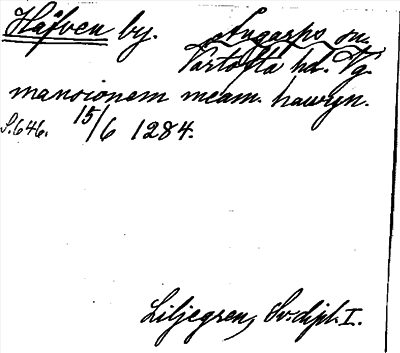 Håfven by. Åsgarps sn.
Vartofta hd. Vg.
mansionem meam. hawyn.
S. 646. 15/6 1284.
Liljegren, Sv. dipl. I.